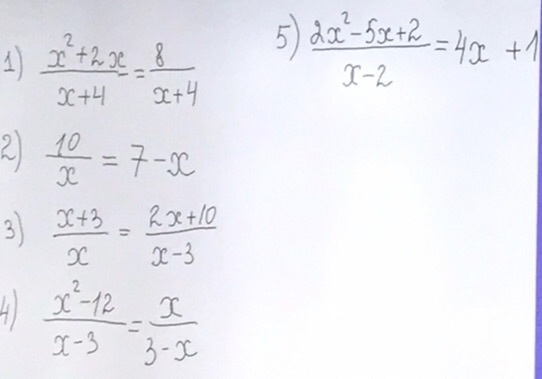 1) (x²+2x)/(x+4) = 8/(x+4)
2) 10/x = 7-x
3) (x+3)/x = (2x+10)/(x-3)
4) (x²-12)/(x-3) = x/(3-x)
5) (2x²-5x+2)/(x-2) = 4x +1